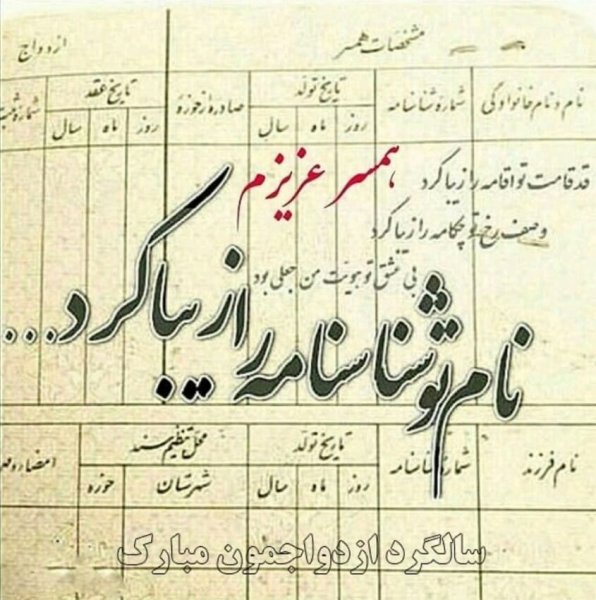 مشخصات همسر
ازدواج
نام و نام خانوادگی
شماره شناسنامه
تاریخ تولد
روز ماه سال
صادره از حوزه
تاریخ عقد
روز ماه سال
شماره
همسر عزیزم
قد قامت تو اقامه را زیبا کرد
وصف رخ تو چکامه را زیبا کرد
بی عشق تو هویت من جعلی بود
نام تو شناسنامه را زیبا کرد...
نام فرزند
شماره شناسنامه
تاریخ تولد
روز ماه سال
محل تنظیم سند
شهرستان حوزه
امضاء و مهر
سالگرد ازدواجمون مبارک